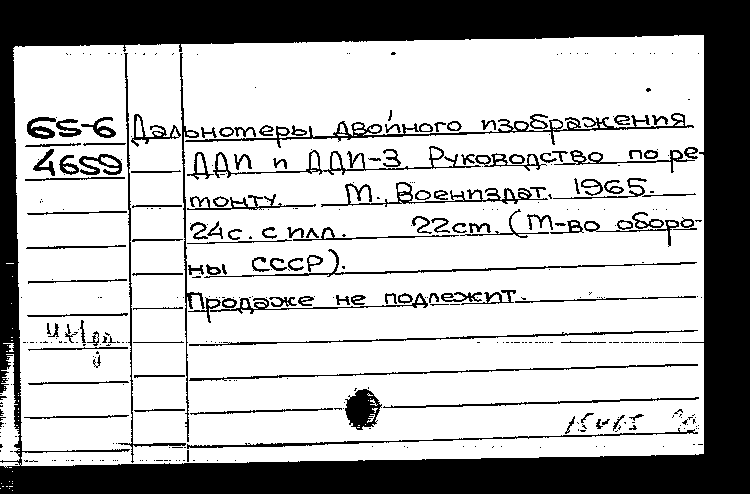 65-6 Дальномеры двойного изображения
4659 ДДИ и ДДИ-3. Руководство по ре-
монту. М., Воениздат, 1965.
24с. с илл. 22см. (М-во оборо-
ны СССР).
Продаже не подлежит.